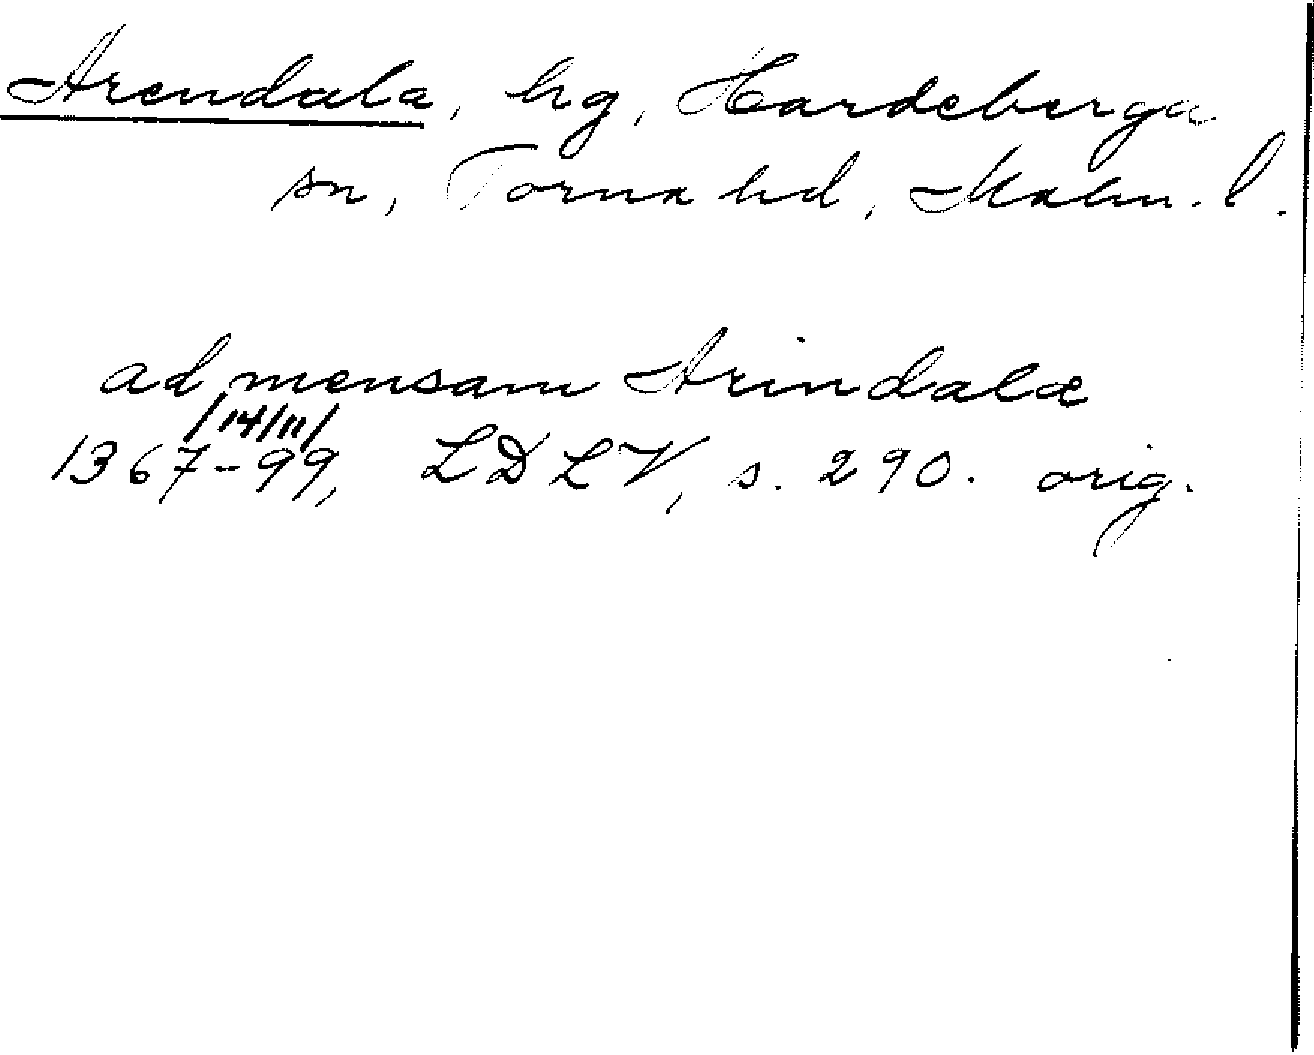 Arendala, hg, Hardeberga
sn, Torna hd, Malm. l.
ad mensam Arindalæ
/14/11/
1367-99, LDLV, s. 290. orig.